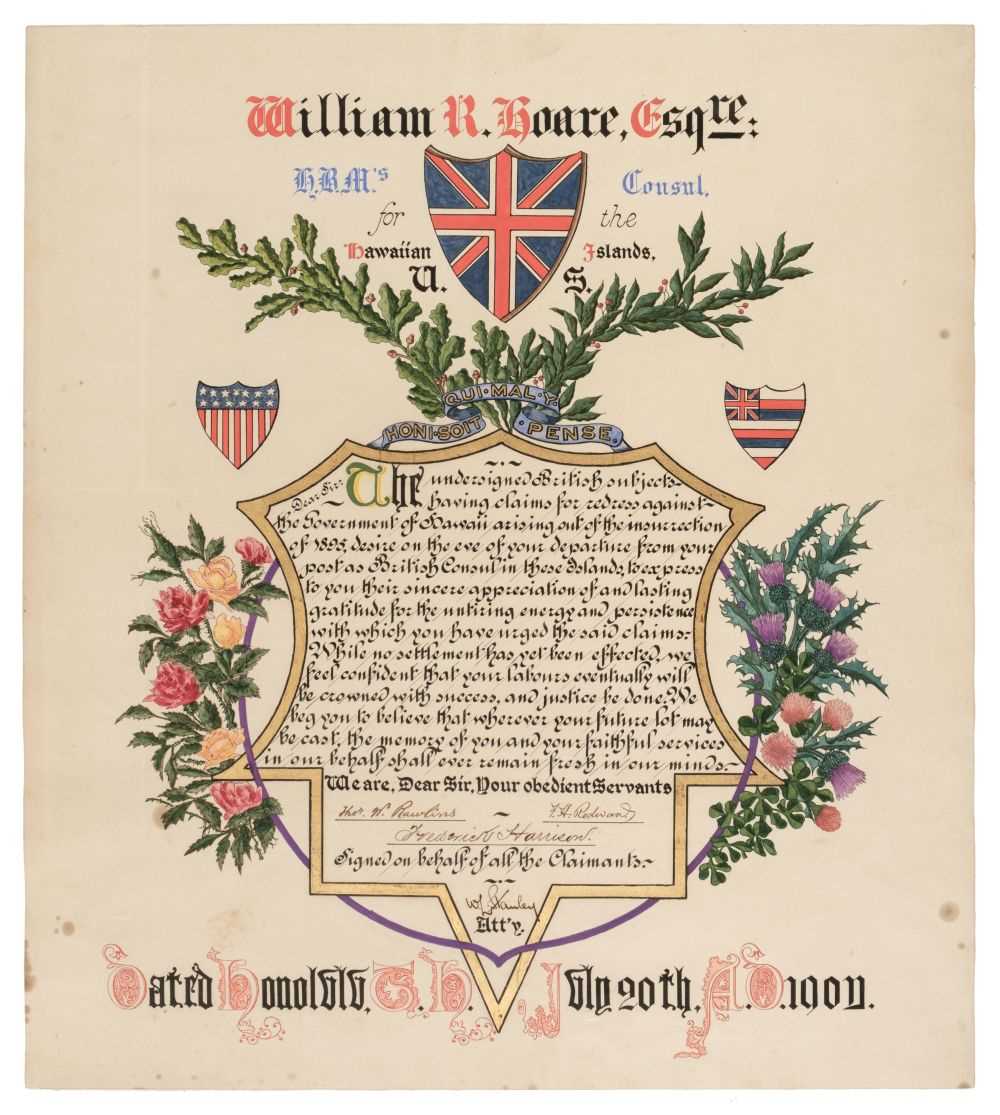 William R. Hoare, Esqre:
H.B.M.'s Consul,
for the
Hawaiian Islands,
U. S.
QUI·MAL·Y·
HONI·SOIT PENSE.
Dear Sir:~ The undersigned British subjects
having claims for redress against
the Government of Hawaii arising out of the insurrection
of 1895, desire on the eve of your departure from your
post as British Consul in these Islands, to express
to you their sincere appreciation of and lasting
gratitude for the untiring energy and persistence
with which you have urged the said claims:
While no settlement has yet been effected, we
feel confident that your labours eventually will
be crowned with success, and justice be done. We
beg you to believe that wherever your future lot may
be cast, the memory of you and your faithful services
in our behalf shall ever remain fresh in our minds.~
We are, Dear Sir, Your obedient Servants
Thos. W. Rawlins ~ F. H. Redward
Frederick Harrison.
Signed on behalf of all the Claimants.~
Att'y.
Dated Honolulu, T. H. July 20th, A. D. 1900.